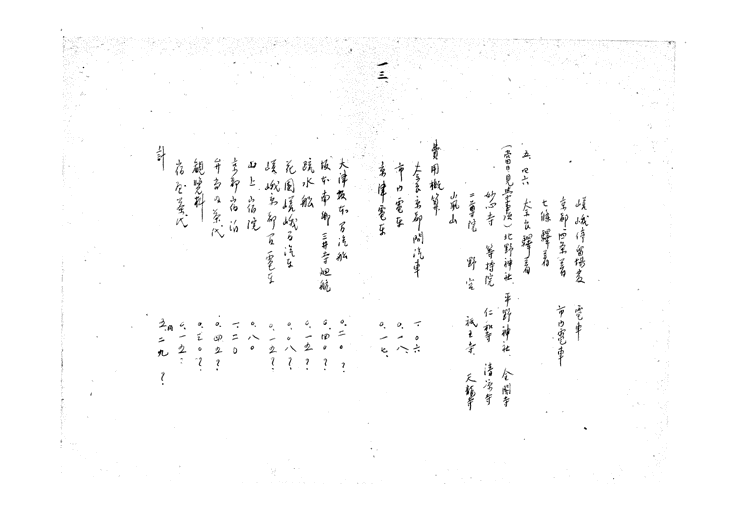 一三
嵯峨停留場発 電車
京都四条着 市内電車
七條驛着
五、四六 奈良驛着
(当日見学箇所) 北野神社 平野神社 金閣寺
妙心寺 等持院 仁和寺 清凉寺
二尊院 野宮 祇王寺 天龍寺
嵐山
費用概算
奈良京都間汽車 一.〇六
市内電車 〇.一八
京津電車 〇.一七
大津坂本間汽船 〇.二〇?
坂本南郷三井寺廻航 〇.四〇?
疏水船 〇.一五?
花園嵯峨間汽車 〇.〇八?
嵯峨京都間電車 〇.一五?
山上宿院 〇.八〇
京都宿泊 一.二〇
弁当及茶代 〇.四五?
観覧料 〇.三〇?
宿屋茶代 〇.一五?
計 五円二九?